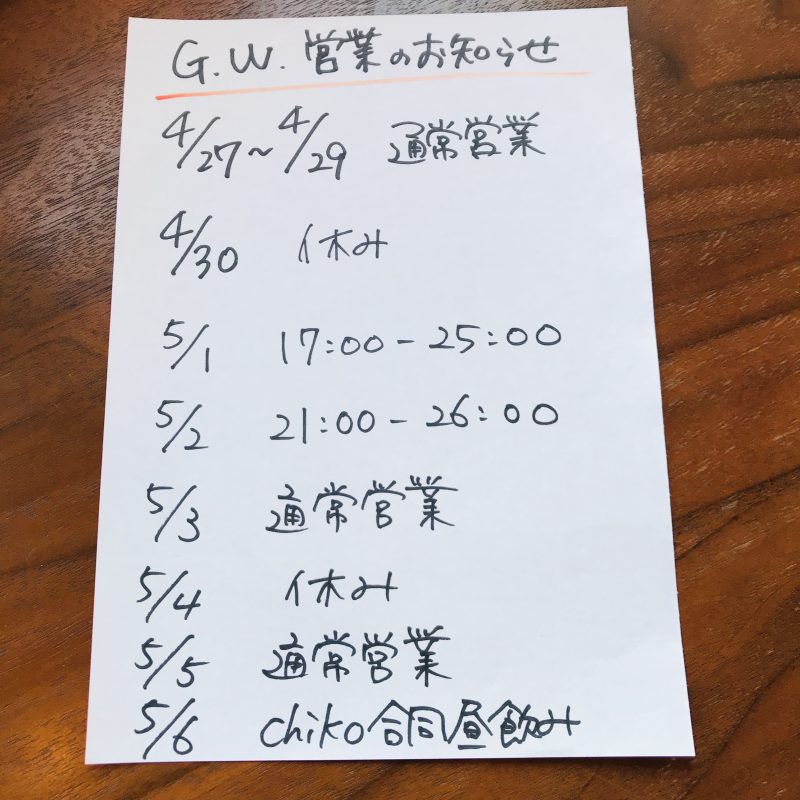 G.W. 営業のお知らせ
4/27~4/29 通常営業
4/30 休み
5/1 17:00-25:00
5/2 21:00-26:00
5/3 通常営業
5/4 休み
5/5 通常営業
5/6 chiko合同昼飲み